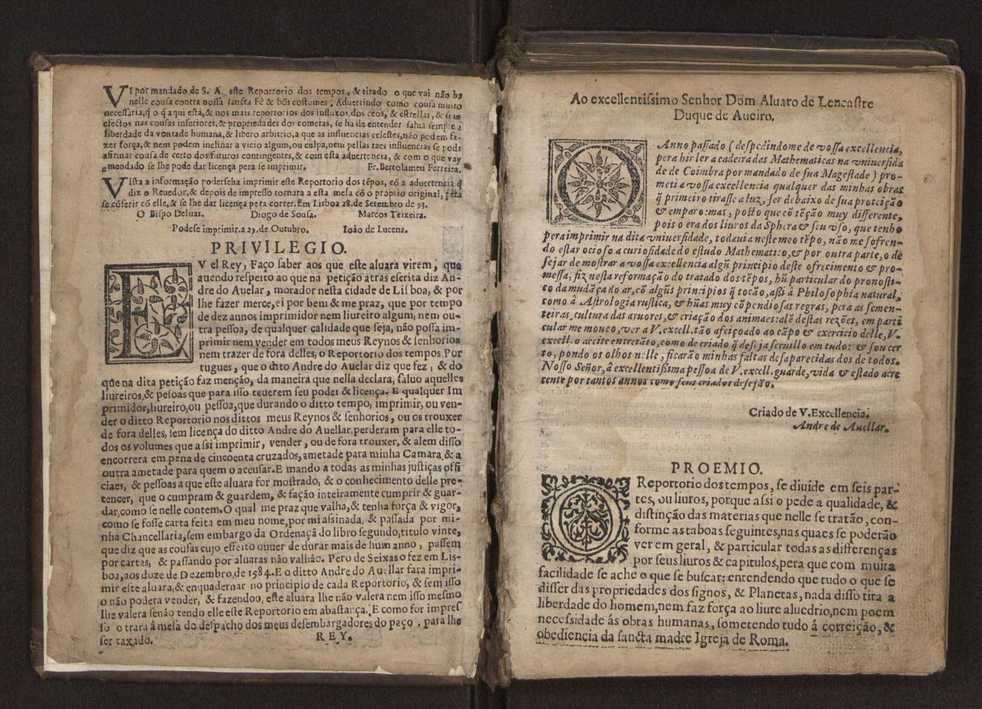 VI por mandado de S. A. este Reportorio dos tempos, & tirado o que vai não ha
nelle cousa contra nossa sancta Fè & bõs costumes, Aduertindo como cousa muito
necessaria, q̃ o q̃ aqui está, & nos mais reportorios dos influxos, dos ceos, & estrellas, & seus
effectos nas cousas inferiores, & propriedades dos cometas, se ha de entender salua sempre a
liberdade da vontade humana, & libero arbitrio, a que as influencias celestes, não podem fa-
zer força, & nem podem inclinar a vicio algum, ou culpa, nem pellas taes influencias se pode
afirmar cousa de certo dos futuros contingentes, & com esta aduertencia, & com o que vay
mandado se lhe pode dar licença pera se imprimir. Fr. Bertolameu Ferreira.
VIsta a informação poderseha imprimir este Reportorio dos tẽpos, cõ a aduertencia q̃
diz o Reuedor, & depois de impresso torne a esta mesa cõ o proprio original, pera
se cõferir cõ elle, & se lhe dar licença pera correr. Em Lisboa 28. de Setembro de 93.
O Bispo Deluas. Diogo de Sousa. Marcos Teixeira.
Podese imprimir. a 23. de Outubro. Ioão de Lucena.
PRIVILEGIO.
EV el Rey, Faço saber aos que este aluara virem, que
auendo respeito ao que na petição atras escrita diz An-
dre do Auelar, morador nesta cidade de Lisboa, & por
lhe fazer merce, ei por bem & me praz, que por tempo
de dez annos imprimidor nem liureiro algum, nem ou-
tra pessoa, de qualquer calidade que seja, não possa im-
primir nem vender em todos meus Reynos & senhorios
nem trazer de fora delles, o Reportorio dos tempos Por
tugues, que o ditto Andre do Auelar diz que fez, & do
que na dita petição faz menção, da maneira que nella declara, saluo aquelles
liureiros, & pesoas que para isso teuerem seu poder & licença. E qualquer Im
primidor, liureiro, ou pessoa, que durando o ditto tempo, imprimir, ou ven-
der o ditto Reportorio nos dittos meus Reynos & senhorios, ou os trouxer
de fora delles, sem licença do ditto Andre do Auellar, perderam para elle to-
dos os volumes que assi imprimir, vender, ou de fora trouxer, & alem disso
encorrera em pena de cincoenta cruzados, ametade para minha Camara, & a
outra ametade para quem o accusar. E mando a todas as minhas justiças offi
ciaes, & pessoas a que este aluara for mostrado, & o conhecimento delle per-
tencer, que o cumpram & guardem, & fação inteiramente cumprir & guar-
dar, como se nelle contem. O qual me praz que valha, & tenha força & vigor,
como se fosse carta feita em meu nome, por mi asinada, & passada por mi-
nha Chancellaria, sem embargo da Ordenaçã do libro segundo, titulo vinte,
que diz que as cousas cujo effeito ouuer de durar mais de hum anno, passem
por cartas, & passando por aluaras não valhão. Pero de Seixas o fez em Lis-
boa, aos doze de Dezembro, de 1584. E o ditto Andre do Auellar fara impri-
mir este aluara, & enquadernar no principio de cada Reportorio, & sem isso
o não podera vender, & fazendoo, este aluara lhe não valera nem isso mesmo
lhe valera senão tendo elle este Reportorio em abastança. E como for impres
so o trara á mesa do despacho dos meus desembargadores do paço, para lhe
ser taxado. REY.
Ao excellentissimo Senhor Dom Aluaro de Lencastre
Duque de Aueiro.
O Anno passado (despedindome de vossa excellencia,
pera hir ler a cadeira das Mathematicas na vniuersida
de de Coimbra por mandado de sua Magestade) pro-
meti a vossa excellencia qualquer das minhas obras
q̃ primeiro tirasse a luz, ser debaixo de sua proteição
& emparo: mas, posto que cõ tẽção muy differente,
pois o era dos liuros da Sphera & seu vso, que tenho
pera imprimir na dita vniuersidade, todauia neste meo tẽpo, não me sofren-
do estar ocioso a curiosidade do estudo Mathematico, & por outra parte, o de
sejar de mostrar a vossa excellencia algũ principio deste ofrecimento & pro-
messa, fiz nesta reformação do tratado dos tẽpos, hũ particular do pronosti-
co da mudãça do ar, cõ algũs principios q̃ tocão, assi â Philosophia natural,
como á Astrologia rustica, & hũas muy cõpendiosas regras, pera as semen-
teiras, cultura das aruores, & criação dos animaes: alẽ destas rezões, em parti
cular me moueo, ver a V. excell. tão afeiçoado ao cãpo & exercicio delle, V.
excell. o aceite entretãto, como de criado q̃ deseja seruillo em tudo: & sou cer
to, pondo os olhos nelle, ficarão minhas faltas desaparecidas dos de todos.
Nosso Senhor, a excellentissima pessoa de V. excell. guarde, vida & estado acre
cente por tantos annos como seus criados desejão.
Criado de V. Excellencia.
Andre de Auellar.
PROEMIO.
O Reportorio dos tempos, se diuide em seis par-
tes, ou liuros, porque assi o pede a qualidade, &
distinção das materias que nelle se tratão, con-
forme as taboas seguintes, nas quaes se poderão
ver em geral, & particular todas as differenças
por seus liuros & capitulos, pera que com muita
facilidade se ache o que se buscar: entendendo que tudo o que se
disser das propriedades dos signos, & Planetas, nada disso tira a
liberdade do homem, nem faz força ao liure aluedrio, nem poem
necessidade ás obras humanas, sometendo tudo â correição, &
obediencia da sancta madre Igreja de Roma.